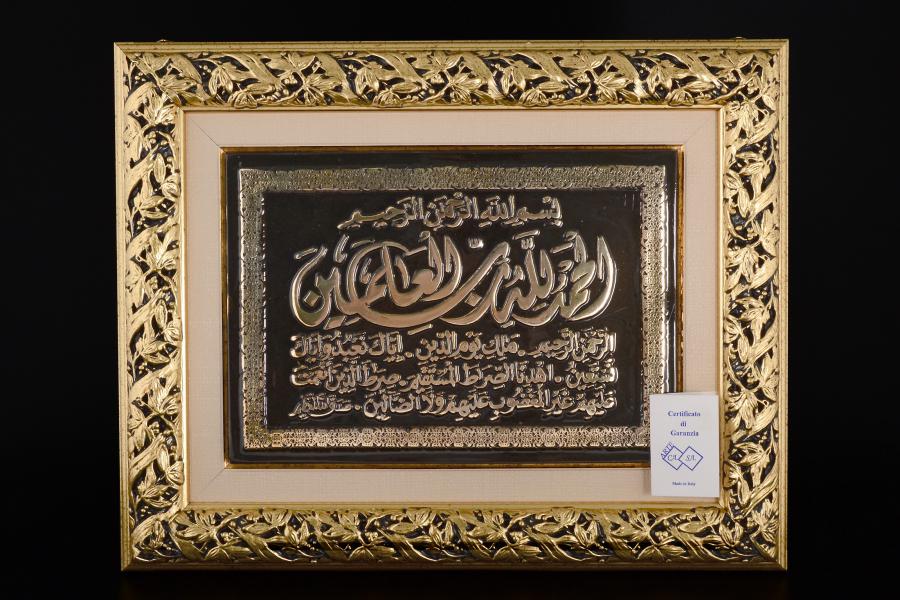 بسم الله الرحمن الرحيم
الحمد لله رب العالمين
الرحمن الرحيم . مالك يوم الدين . إياك نعبد وإياك
نستعين . اهدنا الصراط المستقيم . صراط الذين أنعمت
عليهم غير المغضوب عليهم ولا الضالين .
Certificato
di
Garanzia
ARTE
CA SA.
Made in Italy